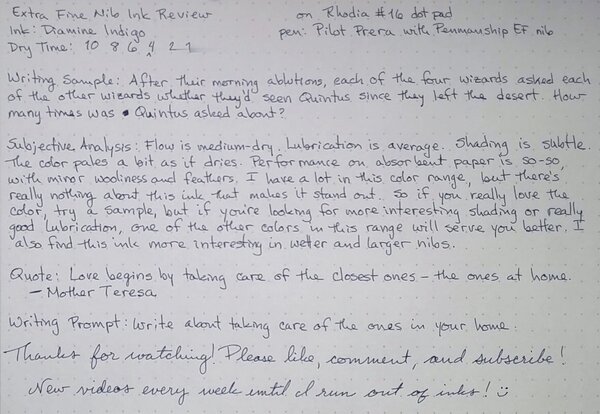 Extra Fine Nib Ink Review on Rhodia #16 dot pad
Ink: Diamine Indigo pen: Pilot Prera with Penmanship EF nib
Dry Time: 10 8 6 4 2 1
Writing Sample: After their morning ablutions, each of the four wizards asked each
of the other wizards whether they'd seen Quintus since they left the desert. How
many times was Quintus asked about?
Subjective Analysis: Flow is medium-dry. Lubrication is average. Shading is subtle.
The color pales a bit as if dries. Performance on absorbent paper is so-so,
with minor wooliness and feathers. I have a lot in this color range, but there's
really nothing about this ink that makes it stand out. So if you really love the
color, try a sample, but if you're looking for more interesting shading or really
good lubrication, one of the other colors in this range will serve you better. I
also find this ink more interesting in wetter and larger nibs.
Quote: Love begins by taking care of the closest ones – the ones at home.
– Mother Teresa
Writing Prompt: Write about taking care of the ones in your home.
Thanks for watching! Please like, comment, and subscribe!
New videos every week until I run out of inks! :)